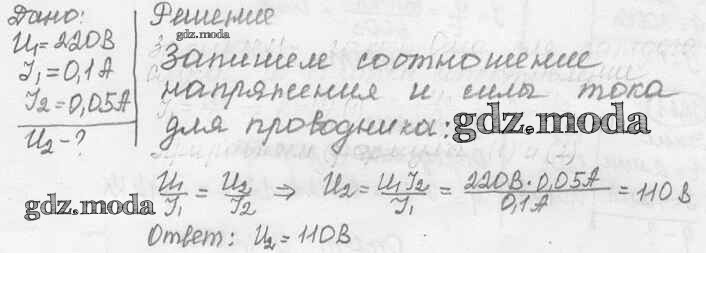 Дано:
U₁=220В
I₁=0,1А
I₂=0,05А
U₂-?
Решение
gdz.moda
Запишем соотношение
напряжения и силы тока
для проводника:
gdz.moda
U₁/I₁ = U₂/I₂ ⇒ U₂ = U₁I₂/I₁ = 220В·0,05А/0,1А = 110В
gdz.moda
Ответ: U₂ = 110В